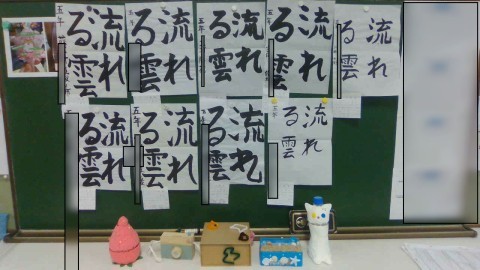 流れ
る雲
五年
流れ
る雲
五年
流れ
る雲
五年
流れ
る雲
五年
流れ
る雲
流れ
る雲
流れ
る雲
五年
流れ
る雲
流れ
る雲